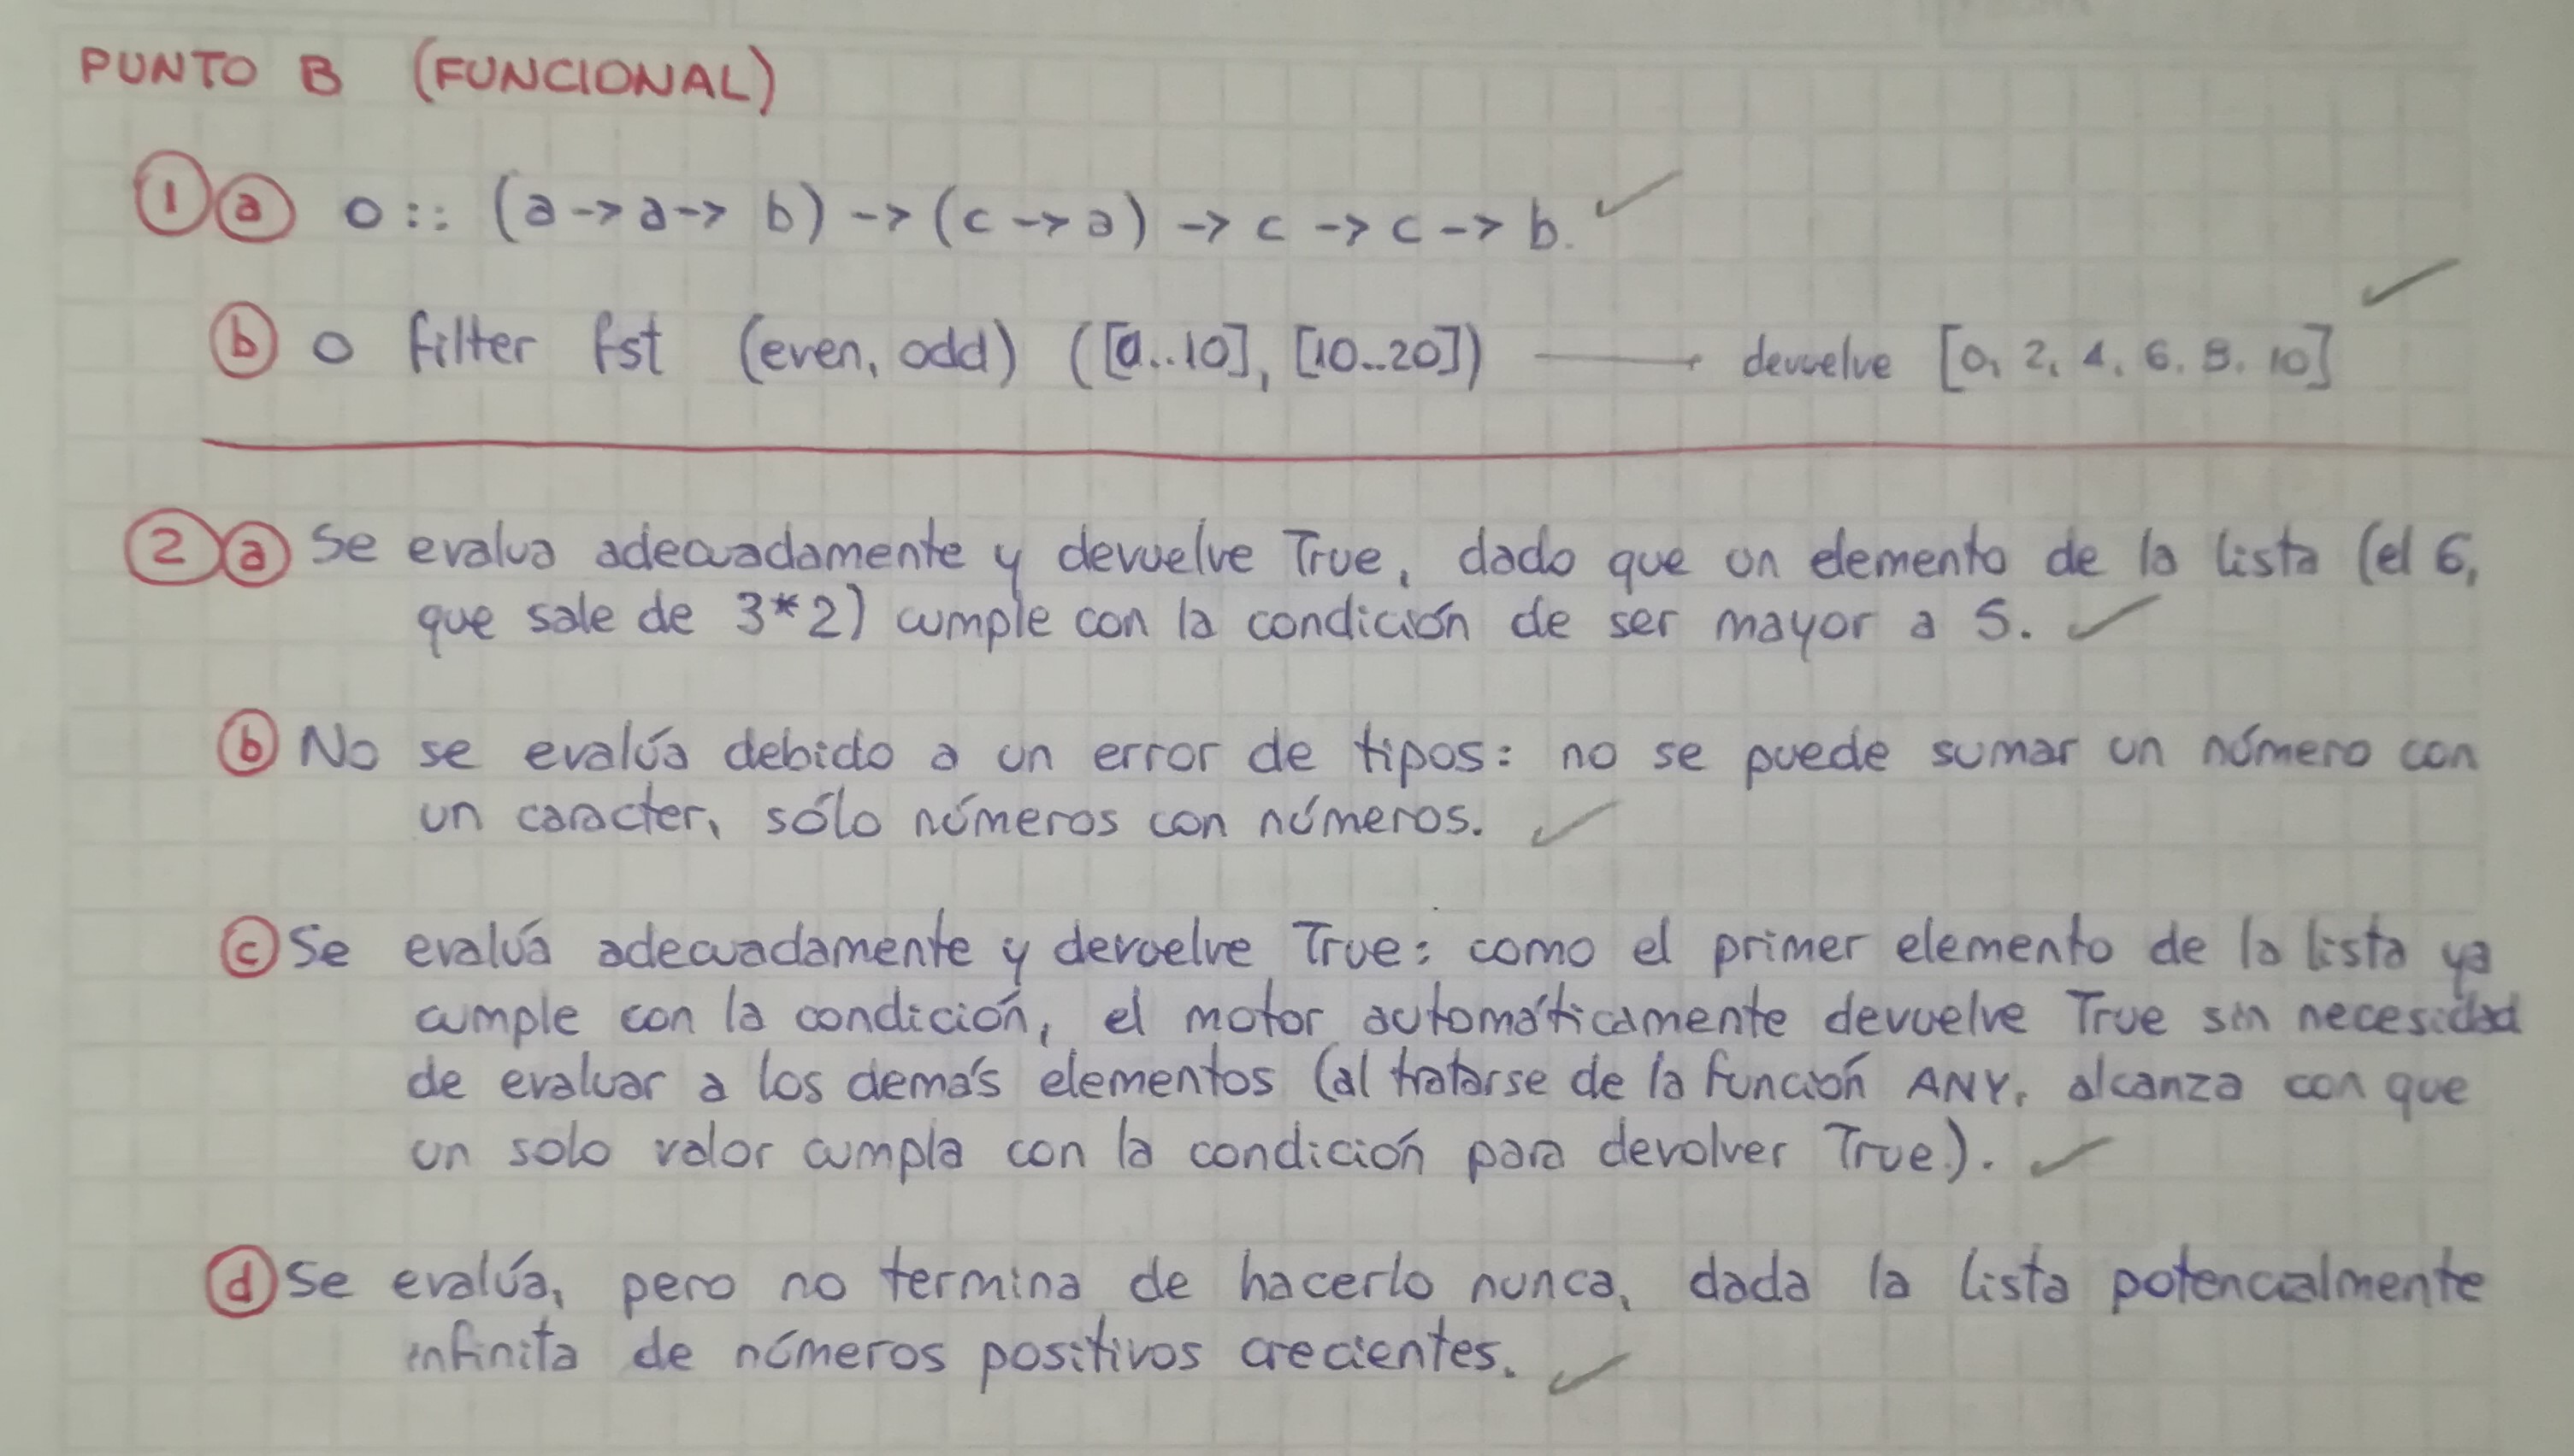 PUNTO B (FUNCIONAL)
1 a o :: (a -> a -> b) -> (c -> a) -> c -> c -> b.
b o filter fst (even, odd) ([0..10], [10..20]) → devuelve [0, 2, 4, 6, 8, 10]
2 a Se evalua adecuadamente y devuelve True, dado que un elemento de la lista (el 6,
que sale de 3*2) cumple con la condición de ser mayor a 5.
b No se evalúa debido a un error de tipos: no se puede sumar un número con
un caracter, sólo números con números.
c Se evalúa adecuadamente y devuelve True: como el primer elemento de la lista ya
cumple con la condición, el motor automáticamente devuelve True sin necesidad
de evaluar a los demás elementos (al tratarse de la función ANY, alcanza con que
un solo valor cumpla con la condición para devolver True).
d Se evalúa, pero no termina de hacerlo nunca, dada la lista potencialmente
infinita de números positivos crecientes.